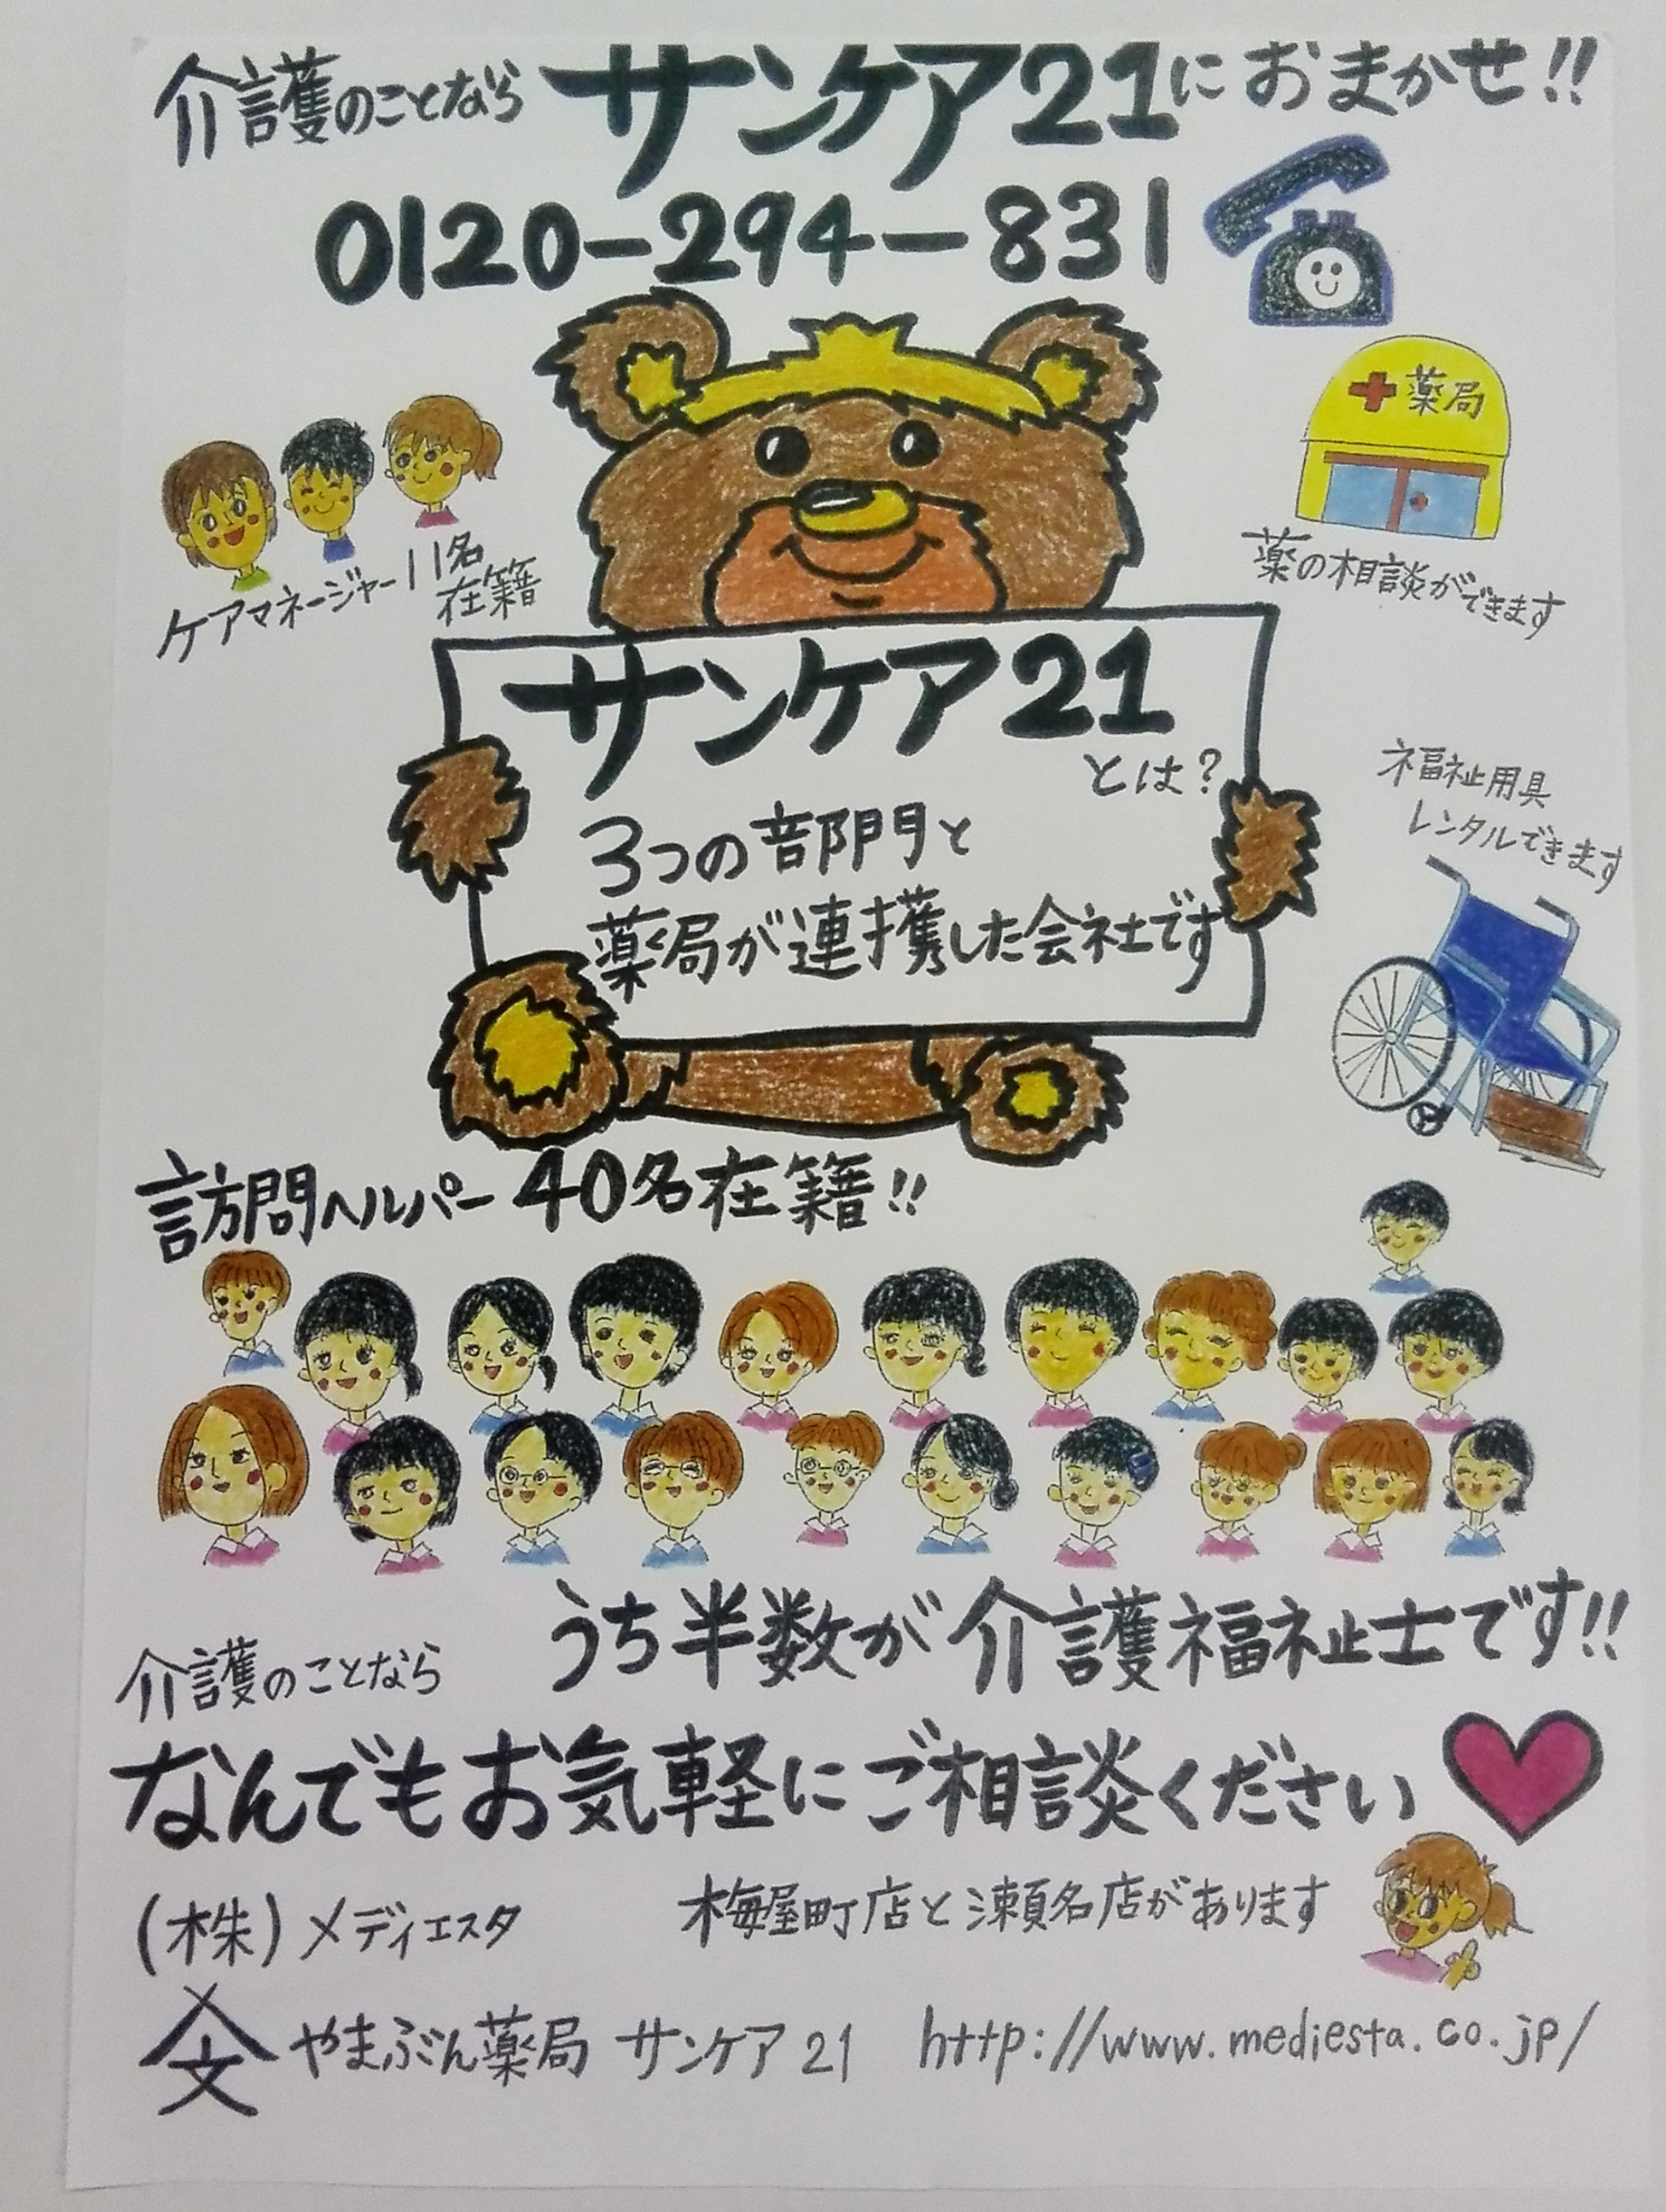 介護のことなら サンケア21に おまかせ!!
0120-294-831
ケアマネージャー11名
在籍
薬局
薬の相談ができます
サンケア21
とは?
3つの部門と
薬局が連携した会社です
福祉用具
レンタルできます
訪問ヘルパー 40名在籍!!
うち半数が介護福祉士です!!
介護のことなら
なんでもお気軽にご相談ください
(株)メディエスタ
梅屋町店と瀬名店があります
文 やまぶん薬局 サンケア21 http://www.mediesta.co.jp/